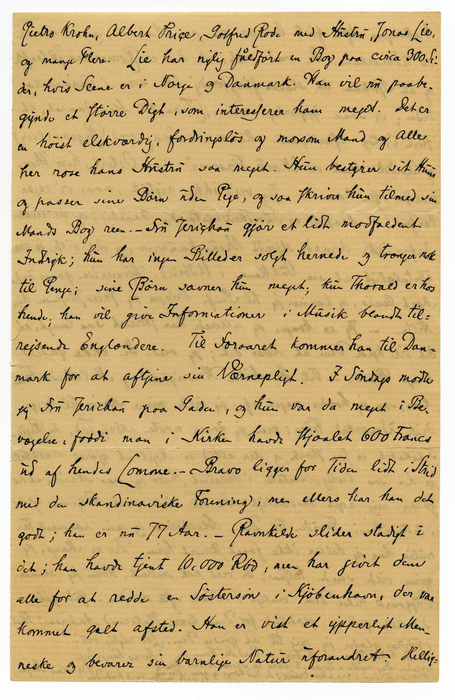 Pietro Krohn, Albert Price, Gotfred Rode med Hustru, Jonas Lie,
og mange Flere. Lie har nylig fuldført en Bog paa circa 300 Si-
der, hvis Scene er i Norge og Danmark. Han vil nu paabe-
gynde et større Digt, som interesserer ham meget. Det er
en høist elskværdig, fordringsløs og morsom Mand og Alle
her rose hans Hustru saa meget. Hun bestyrer sit Huus
og passer sine Børn uden Pige, og saa skriver hun tilmed sin
Mands Bog reen. – Fru Jerichau gjør et lidt modfaldent
Indtryk; hun har ingen Billeder solgt hernede og trænger nok
til Penge; sine Børn savner hun meget, kun Thorald er hos
hende; han vil give Informationer i Musik blandt til=
rejsende Englændere. Til Foraaret kommer han til Dan-
mark for at aftjene sin Værnepligt. I Søndags mødte
jeg Fru Jerichau paa Gaden, og hun var da meget i Be-
vægelse, fordi man i Kirken havde stjaalet 600 Francs
ud af hendes Lomme. – Bravo ligger for Tiden lidt i Strid
med den skandinaviske Forening, men ellers har han det
godt; han er nu 77 Aar. – Ravnkilde slider stadigt i
det; han havde tjent 10,000 Rbd, men har givet dem
alle for at redde en Søstersøn i Kjøbenhavn, der var
kommet galt afsted. Han er vist et ypperligt Men-
neske og bevarer sin barnlige Natur uforandret. Hellig=